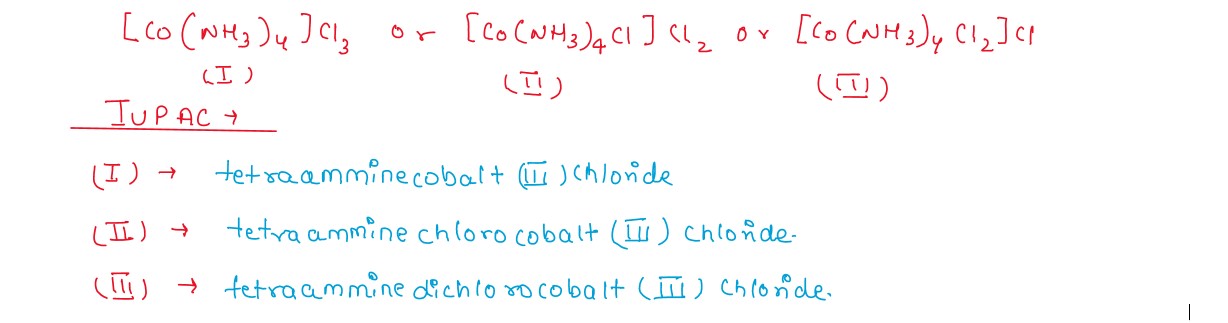 [Co(NH₃)₄]Cl₃ or [Co(NH₃)₄Cl]Cl₂ or [Co(NH₃)₄Cl₂]Cl
(I) (II) (III)
IUPAC →
(I) → tetraamminecobalt (III) chloride
(II) → tetraammine chloro cobalt (III) chloride.
(III) → tetraammine dichloro cobalt (III) chloride.